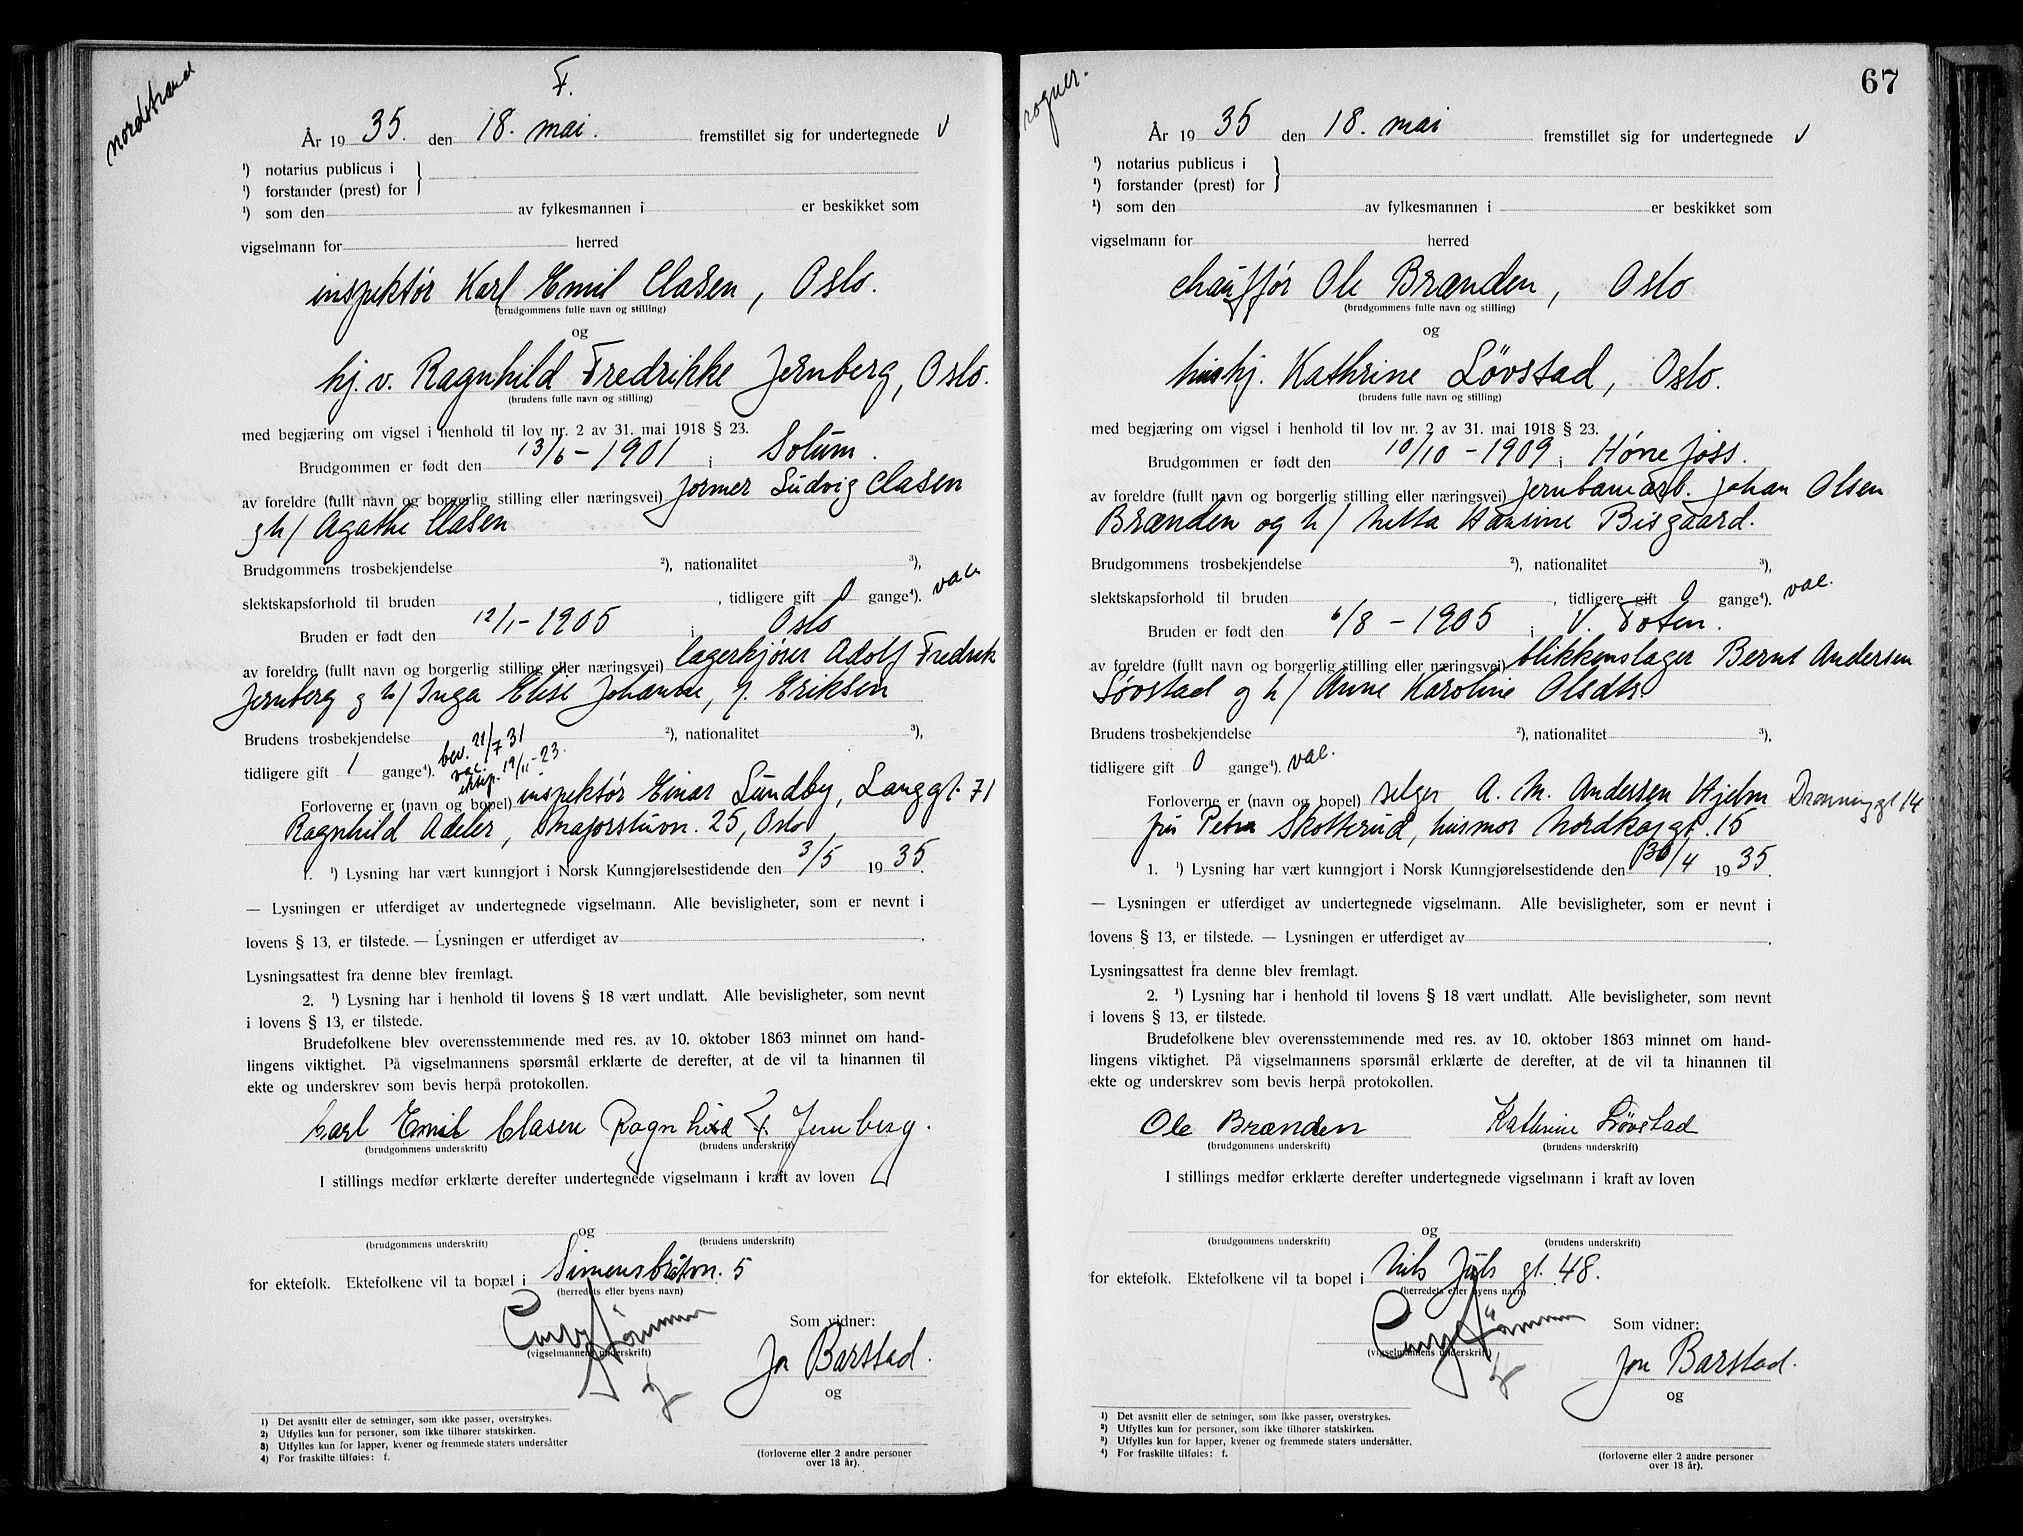 nordstrand
F.
År 19 35. den 18. mai. fremstillet sig for undertegnede v
¹) notarius publicus i
¹) forstander (prest) for
¹) som den av fylkesmannen i er beskikket som
vigselmann for herred
inspektør Karl Emil Clasen, Oslo.
(brudgommens fulle navn og stilling)
og
hj. v. Ragnhild Fredrikke Jernberg, Oslo.
(brudens fulle navn og stilling)
med begjæring om vigsel i henhold til lov nr. 2 av 31. mai 1918 § 23.
Brudgommen er født den 13/6 - 1901 i Solum.
av foreldre (fullt navn og borgerlig stilling eller næringsvei) former Ludvig Clasen
g h/ Agathe Clasen
Brudgommens trosbekjendelse ²), nationalitet ³),
slektskapsforhold til bruden , tidligere gift 0 gange⁴). vac
Bruden er født den 12/1 - 1905 i Oslo
av foreldre (fullt navn og borgerlig stilling eller næringsvei) lagerkjører Adolf Fredrik
Jernberg g h/ Inga Elise Johanne, f. Eriksen
Brudens trosbekjendelse ²), nationalitet ³),
tidligere gift 1 gange⁴). bev. 21/7 31
vac. 19/11 - 23.
Forloverne er (navn og bopel) inspektør Einar Lundby, Langgt. 71
Ragnhild Adeler, Majorstuvn. 25, Oslo,
1. ¹) Lysning har vært kunngjort i Norsk Kunngjørelsestidende den 3/5 19 35.
— Lysningen er utferdiget av undertegnede vigselmann. Alle bevisligheter, som er nevnt i
lovens § 13, er tilstede. — Lysningen er utferdiget av .
Lysningsattest fra denne blev fremlagt.
2. ¹) Lysning har i henhold til lovens § 18 vært undlatt. Alle bevisligheter, som nevnt
i lovens § 13, er tilstede.
Brudefolkene blev overensstemmende med res. av 10. oktober 1863 minnet om hand-
lingens viktighet. På vigselmannens spørsmål erklærte de derefter, at de vil ta hinannen til
ekte og underskrev som bevis herpå protokollen.
Carl Emil Clasen Ragnhild F. Jernberg.
(brudgommens underskrift) (brudens underskrift)
I stillings medfør erklærte derefter undertegnede vigselmann i kraft av loven
og
(brudgommens underskrift) (brudens underskrift)
for ektefolk. Ektefolkene vil ta bopæl i Simensbråtvn. 5
(herredets eller byens navn)
Som vidner:
(vigselmannens underskrift)
Jon Barstad.
og
1) Det avsnitt eller de setninger, som ikke passer, overstrykes.
2) Utfylles kun for personer, som ikke tilhører statskirken.
3) Utfylles kun for lapper, kvener og fremmede staters undersåtter
4) For fraskilte tilføies: f.
(forloverne eller 2 andre personer
over 18 år).
67
v
År 19 35 den 18. mai fremstillet sig for undertegnede
¹) notarius publicus i
¹) forstander (prest) for
¹) som den av fylkesmannen i er beskikket som
vigselmann for herred
chauffør Ole Brænden, Oslo
(brudgommens fulle navn og stilling)
og
hushj. Kathrine Løvstad, Oslo.
(brudens fulle navn og stilling)
med begjæring om vigsel i henhold til lov nr. 2 av 31. mai 1918 § 23.
Brudgommen er født den 10/10 - 1909 i Hønefoss.
av foreldre (fullt navn og borgerlig stilling eller næringsvei) Jernbanearb. Johan Olsen
Brænden og h/ Netta Hansine Bisgaard.
Brudgommens trosbekjendelse ²), nationalitet ³),
slektskapsforhold til bruden , tidligere gift 0 gange⁴). vac.
Bruden er født den 6/8 - 1905 i V. Toten.
av foreldre (fullt navn og borgerlig stilling eller næringsvei) blikkenslager Bernt Andersen
Løvstad g h/ Anne Karoline Olsdtr.
Brudens trosbekjendelse ²), nationalitet ³),
tidligere gift 0 gange⁴). vac.
Forloverne er (navn og bopel) selger A. M. Andersen Hjelm Dronninggt 14
fru Petra Skotterud, husmor Nordkapgt. 15
1. ¹) Lysning har vært kunngjort i Norsk Kunngjørelsestidende den 30/4 19 35.
— Lysningen er utferdiget av undertegnede vigselmann. Alle bevisligheter, som er nevnt i
lovens § 13, er tilstede. — Lysningen er utferdiget av .
Lysningsattest fra denne blev fremlagt.
2. ¹) Lysning har i henhold til lovens § 18 vært undlatt. Alle bevisligheter, som nevnt
i lovens § 13, er tilstede.
Brudefolkene blev overensstemmende med res. av 10. oktober 1863 minnet om hand-
lingens viktighet. På vigselmannens spørsmål erklærte de derefter, at de vil ta hinannen til
ekte og underskrev som bevis herpå protokollen.
Ole Brænden Kathrine Løvstad
(brudgommens underskrift) (brudens underskrift)
I stillings medfør erklærte derefter undertegnede vigselmann i kraft av loven
og
(brudgommens underskrift) (brudens underskrift)
for ektefolk. Ektefolkene vil ta bopel i Nils Juels gt. 48.
(herredets eller byens navn)
Som vidner:
(vigselmannens underskrift)
Jon Barstad.
og
¹) Det avsnitt eller de setninger, som ikke passer, overstrykes.
²) Utfylles kun for personer, som ikke tilhører statskirken.
³) Utfylles kun for lapper, kvener og fremmede staters undersåtter.
⁴) For fraskilte tilføies: f.
(forloverne eller 2 andre personer
over 18 år).